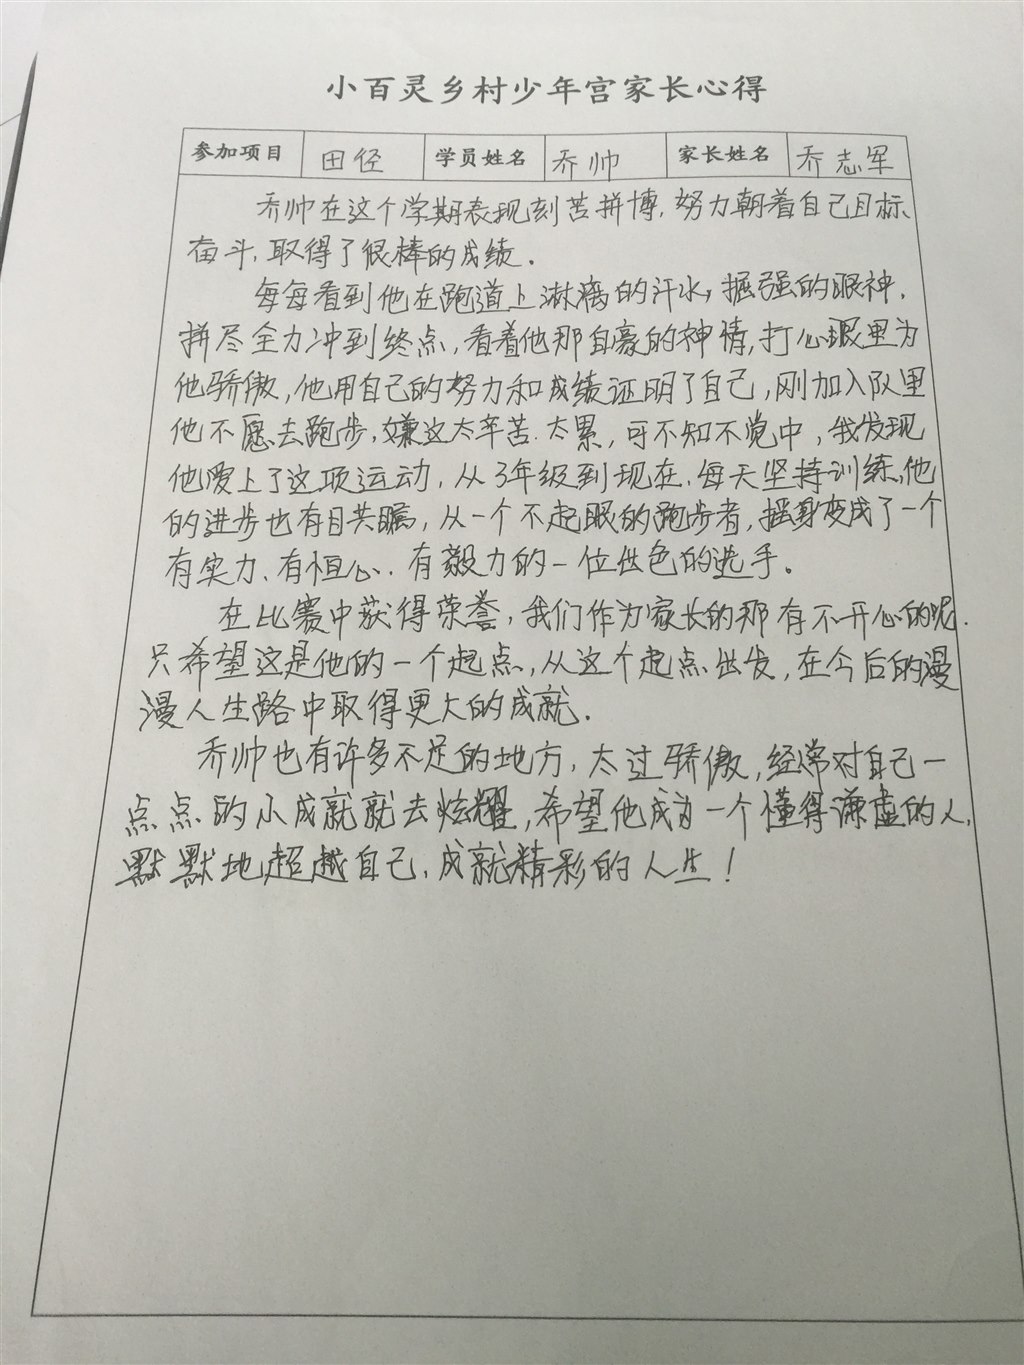 小百灵乡村少年宫家长心得
参加项目 田径 学员姓名 乔帅 家长姓名 乔志军
乔帅在这个学期表现刻苦拼博,努力朝着自己目标
奋斗,取得了很棒的成绩。
每每看到他在跑道上淋漓的汗水,掘强的眼神,
拼尽全力冲到终点,看着他那自豪的神情,打心眼里为
他骄傲,他用自己的努力和成绩证明了自己,刚加入队里
他不愿去跑步,嫌这太辛苦.太累,可不知不觉中,我发现
他爱上了这项运动,从3年级到现在,每天坚持训练,他
的进步也有目共瞩,从一个不起眼的跑步者,摇身变成了一个
有实力、有恒心、有毅力的一位出色的选手。
在比赛中获得荣誉,我们作为家长的那有不开心的呢.
只希望这是他的一个起点,从这个起点出发,在今后的漫
漫人生路中取得更大的成就.
乔帅也有许多不足的地方,太过骄傲,经常对自己一
点点的小成就就去炫耀,希望他成为一个懂得谦虚的人,
默默地超越自己,成就精彩的人生!